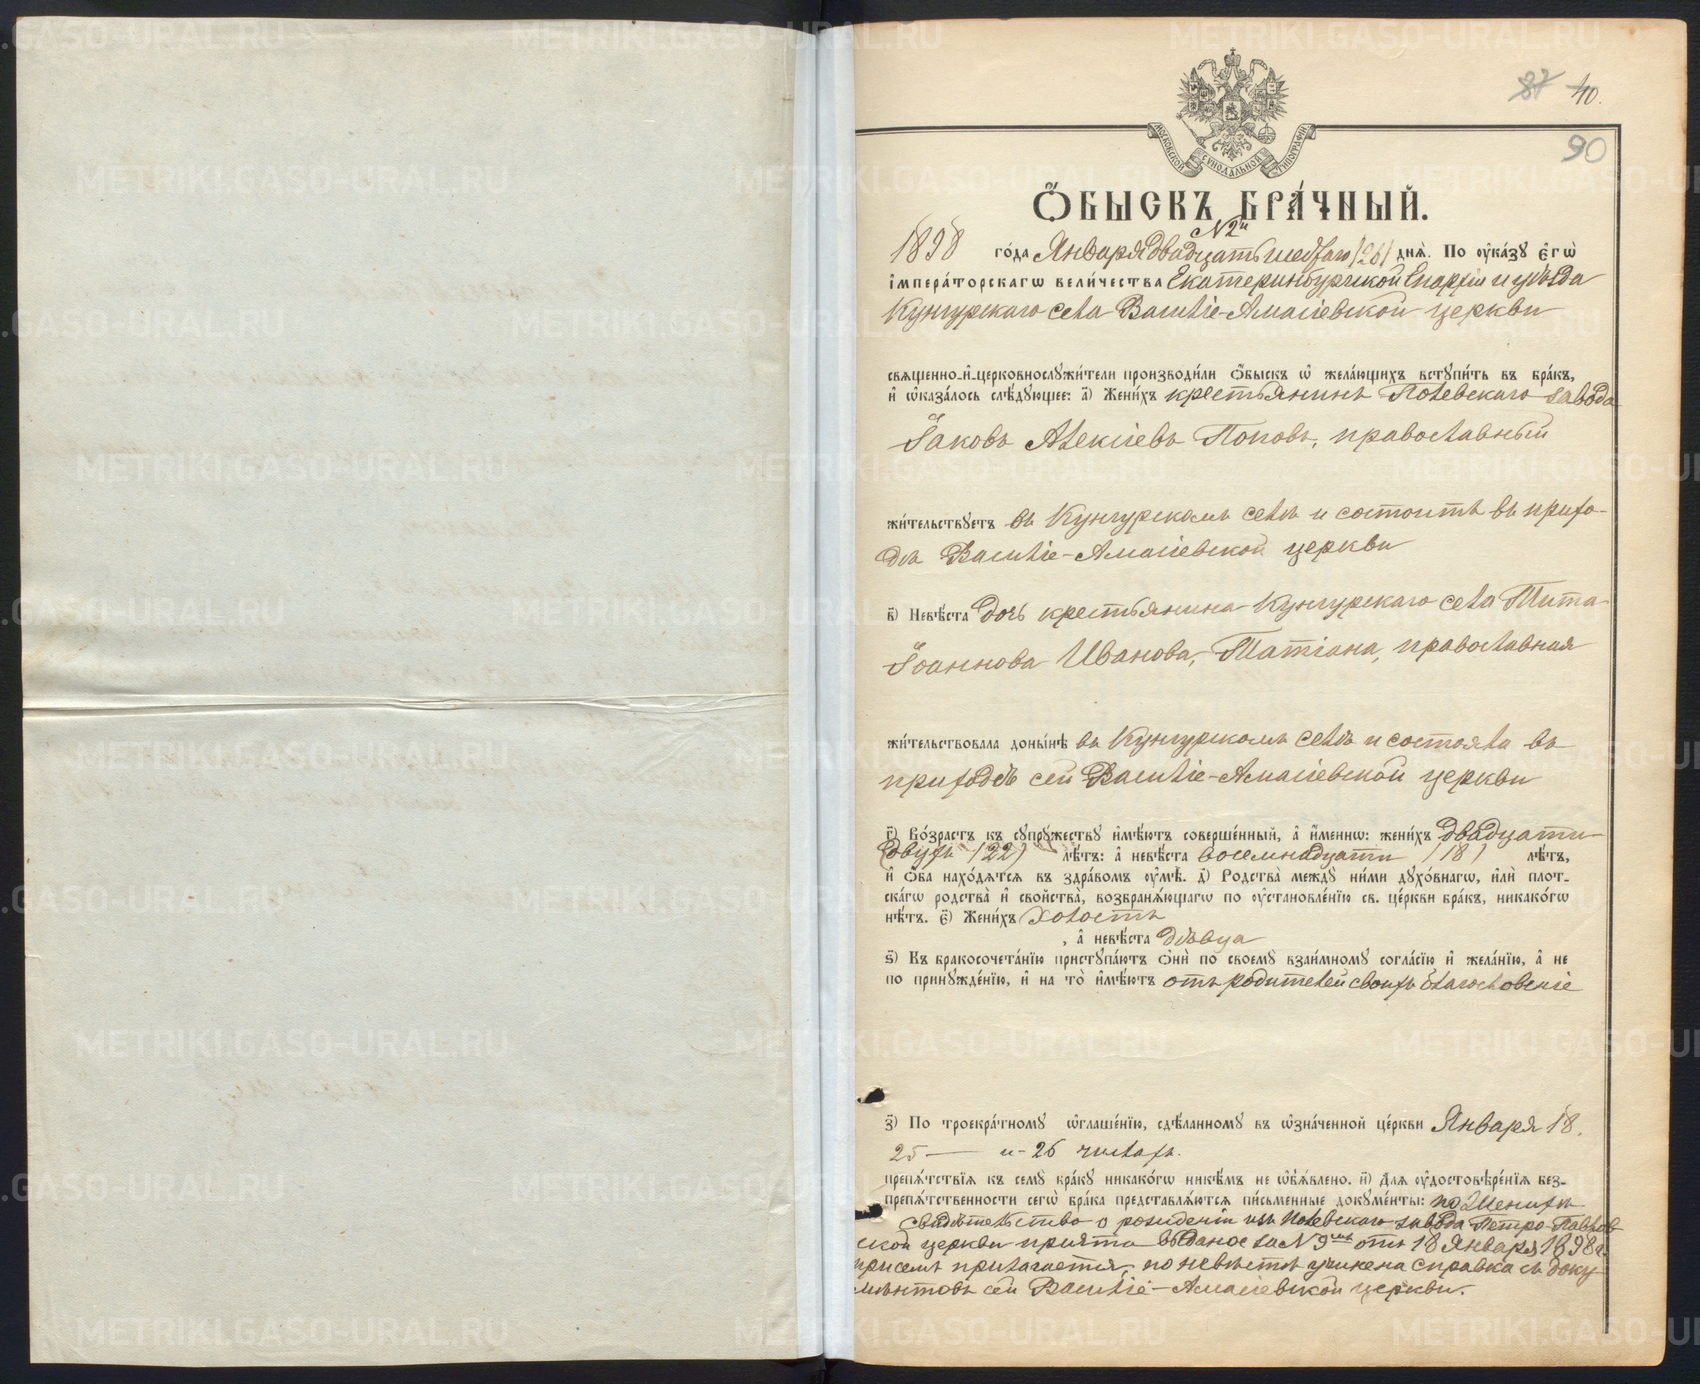 87 40.
90
МОСКОВСКОЙ СѴНОДАЛЬНОЙ ТИПОГРАФІИ
Ѻ҆БЫСКЪ БРА́ЧНЫЙ.
№ 2й
1898 го́да Января двадцать шестаго (26) днѧ̀. По ᲂу҆ка́зꙋ є҆гѡ̀
і҆мпера́торскагѡ вели́чества Екатеринбургской Епархіи и уѣзда
Кунгурскаго села Василіе-Амасіевской церкви
свѧщенно-и҆-церковнослꙋжи́тели производи́ли ѻ҆́быскъ ѡ҆ жела́ющихъ встꙋпи́ть въ бра́къ,
и҆ ѡ҆каза́лось слѣ́дꙋющее: а҃) Жени́хъ крестьянинъ Полевскаго завода
Іаковъ Алексіевъ Поповъ, православный
жи́тельствꙋетъ въ Кунгурскомъ селѣ и состоитъ въ прихо-
дѣ Василіе-Амасіевской церкви
в҃) Невѣ́ста дочь крестьянина Кунгурскаго села Тита
Іоаннова Иванова, Татіана, православная
жи́тельствовала доны́нѣ въ Кунгурскомъ селѣ и состояла въ
приходѣ сей Василіе-Амасіевской церкви
г҃) Во́зрастъ къ сꙋпрꙋ́жествꙋ и҆мѣ́ютъ соверше́нный, а҆ и҆́меннѡ: жени́хъ двадцати
двухъ (22) лѣ́тъ: а҆ невѣ́ста восемнадцати (18) лѣ́тъ,
и҆ ѻ҆́ба нахо́дѧтсѧ въ здра́вомъ ᲂу҆мѣ̀. д҃) Родства̀ междꙋ̀ ни́ми дꙋхо́внагѡ, и҆лѝ плот-
ска́гѡ родства̀ и҆ сво́йства, возбранѧ́ющагѡ по ᲂу҆становле́нїю св. це́ркви бра́къ, никако́гѡ
нѣ́тъ. є҃) Жени́хъ холостъ
, а҆ невѣ́ста дѣвица
ѕ҃) Къ бракосочета́нїю пристꙋпа́ютъ ѻ҆нѝ по своемꙋ̀ взаи́мномꙋ согла́сїю и҆ жела́нїю, а҆ не
по принꙋжде́нїю, и҆ на то̀ и҆мѣ́ютъ отъ родителей своихъ благословеніе
з҃) По троекра́тномꙋ ѡ҆глаше́нїю, сдѣ́ланномꙋ въ ѡ҆зна́ченной це́ркви Января 18,
25 — и 26 числахъ.
препѧ́тствїѧ къ семꙋ̀ бра́кꙋ никако́гѡ никѣ́мъ не ѡ҆б̾ѧ́влено. и҃) Длѧ ᲂу҆достовѣре́нїѧ без-
препѧ́тственности сегѡ̀ бра́ка представлѧ́ютсѧ пи́сьменные докꙋме́нты: по Женихѣ
свидѣтельство о рожденіи изъ Полевскаго завода Петро-Павлов
ской церкви принта выданое за № 9мъ отъ 18 Января 1898 г.
при семъ прилагается, по невѣстѣ учинена справка съ доку
ментовъ сей Василіе-Амасіевской церкви.